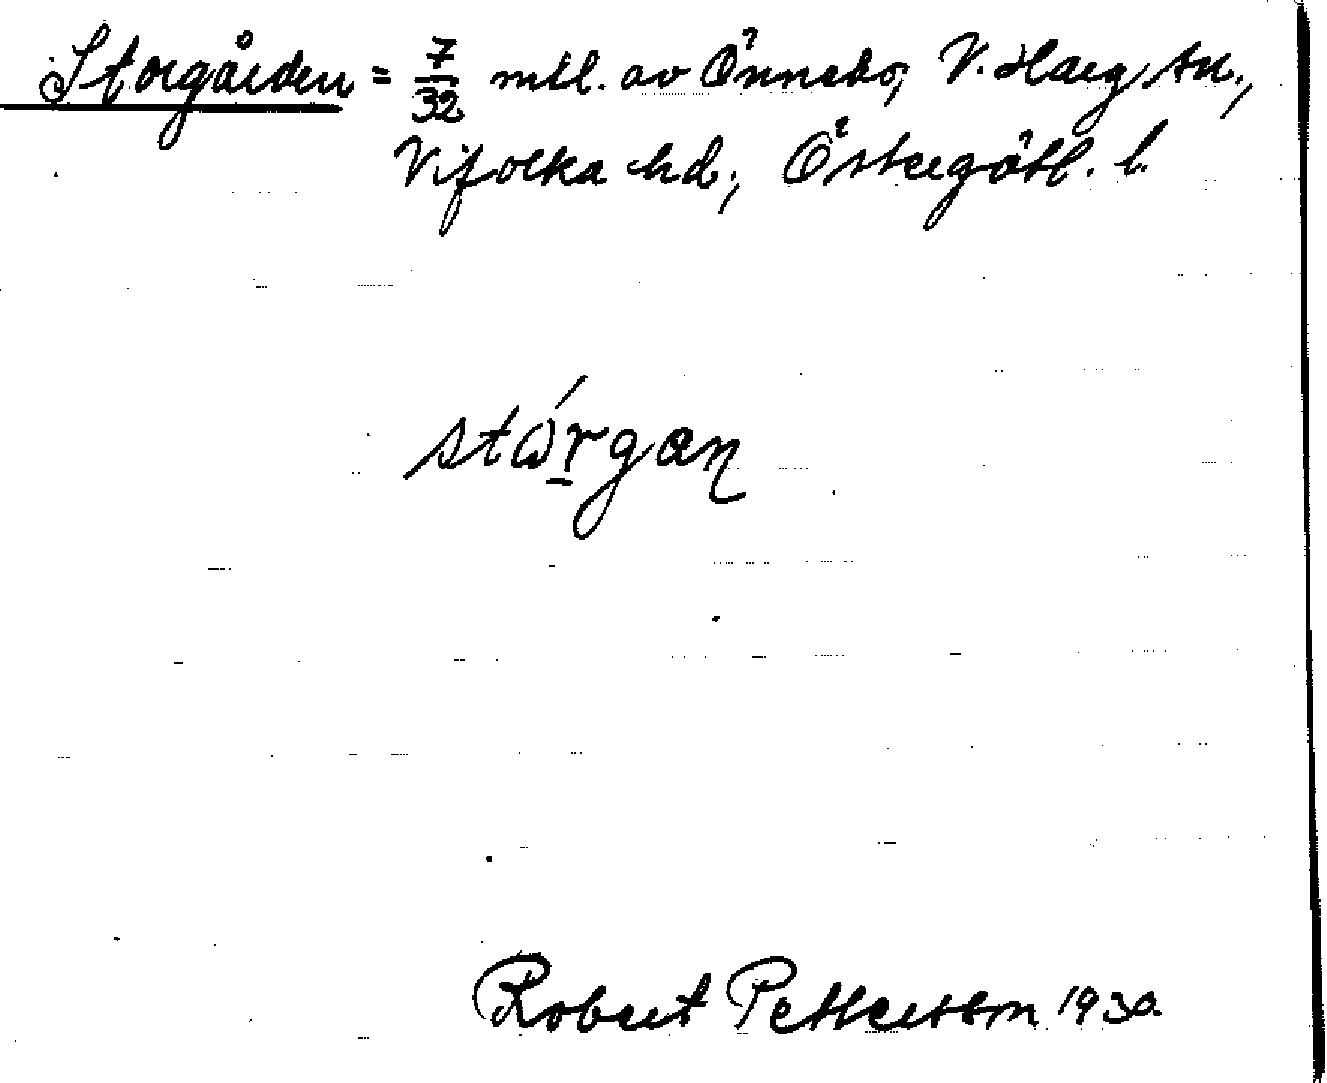 Storgården = 7/32 mtl. av Önnebo, V. Harg sn.,
Vifolka hd; Östergötl. l.
stǿrgaɳ
Robert Pettersson 1930.